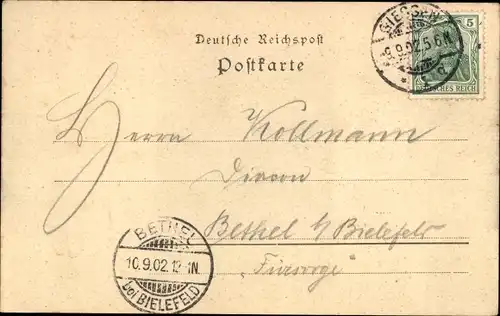 Deutsche Reichspost
Postkarte
GIESSEN
9.9.02.5-6N.
5
DEUTSCHES REICH
Herrn Kollmann
Diacon
Bethel b/ Bielefeld
"Fürsorge"
BETHEL
10.9.02.12-1N.
bei BIELEFELD